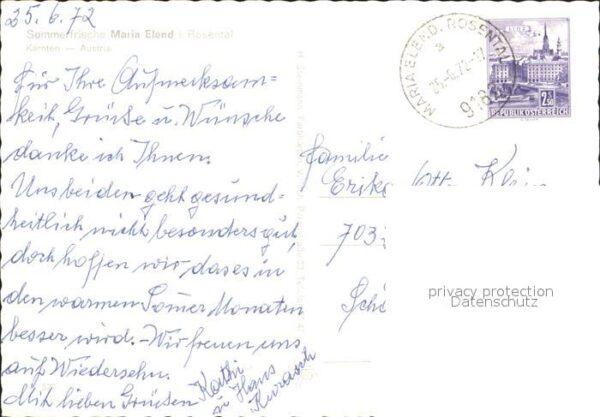 25.6.72
Sommerfrische Maria Elend i. Rosental
Kärnten — Austria
Für Ihre Aufmerksam-
keit, Grüße u. Wünsche
danke ich Ihnen.
Uns beiden geht gesund-
heitlich nicht besonders gut,
doch hoffen wir, dases in
den warmen Somer Monaten
besser wird. - Wir freuen uns
auf Wiedersehn.
Mit lieben Grüßen
Kathi
u. Hans
MARIA ELEND, ROSENTAL
a
25.-6.72
WIEN
2.50
REPUBLIK ÖSTERREICH
Familie
Erika
703
Schö
privacy protection
Datenschutz